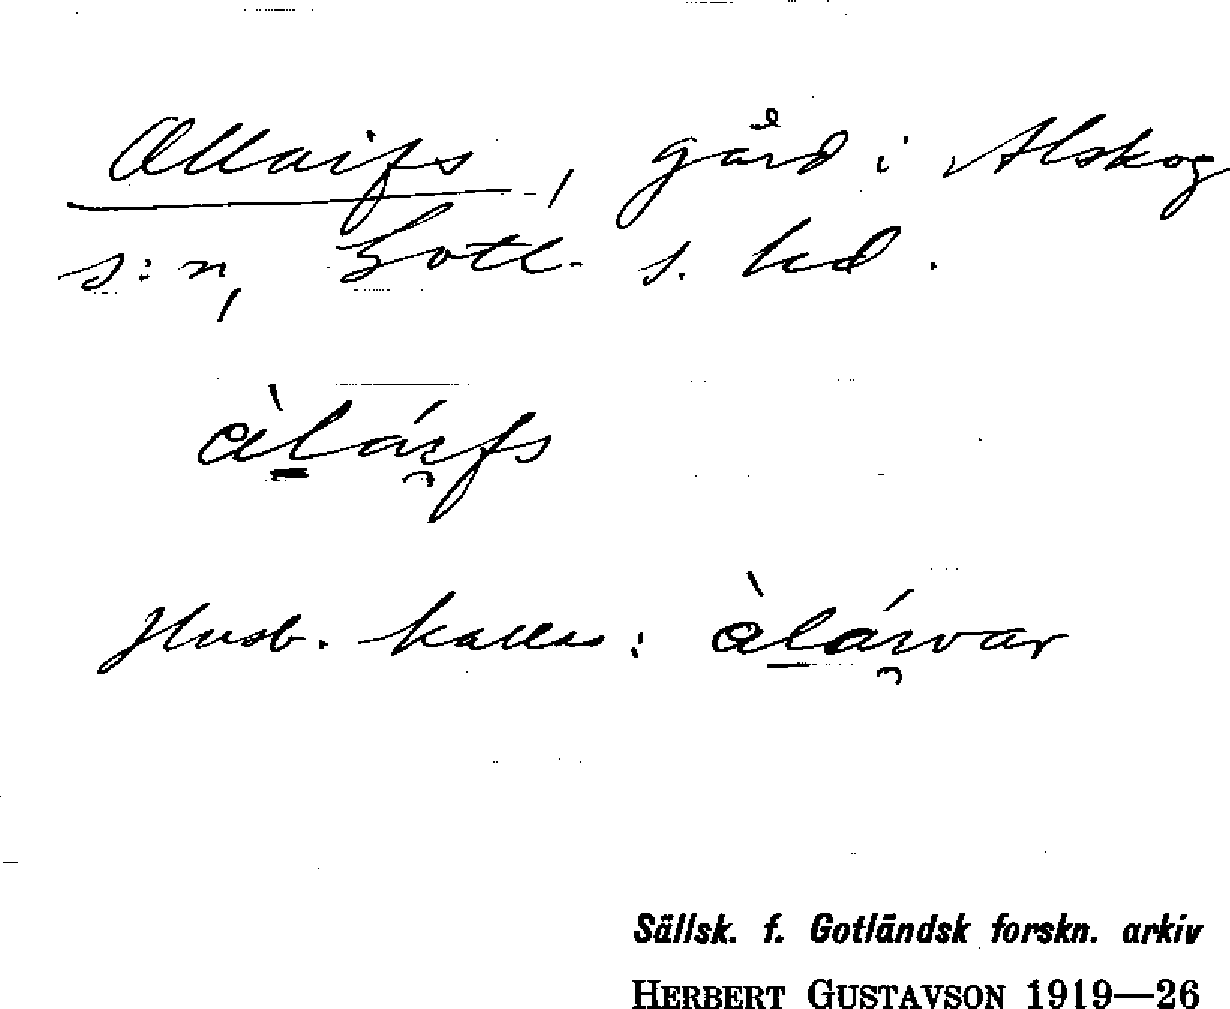 Allaifs, gård i Alskog
s:n, Gotl. s. hd.
àláıfs
Husb. kallas: àláıvar
Sällsk. f. Gotländsk forskn. arkiv
HERBERT GUSTAVSON 1919—26